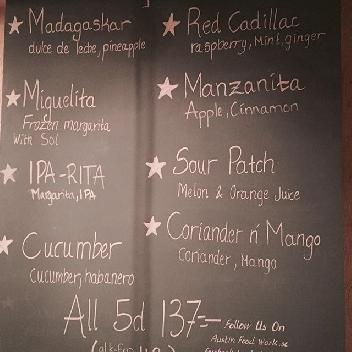 ★ Madagaskar
dulce de leche, pineapple
★ Miguelita
Frozen margarita
With Sol
★ IPA-RITA
Margarita, IPA
★ Cucumber
Cucumber, habanero
★ Red Cadillac
raspberry, Mint, ginger
★ Manzanita
Apple, Cinnamon
★ Sour Patch
Melon & Orange Juice
★ Coriander n' Mango
Coriander, Mango
All 5d 137:-
Follow Us On
Austin Food Work.se